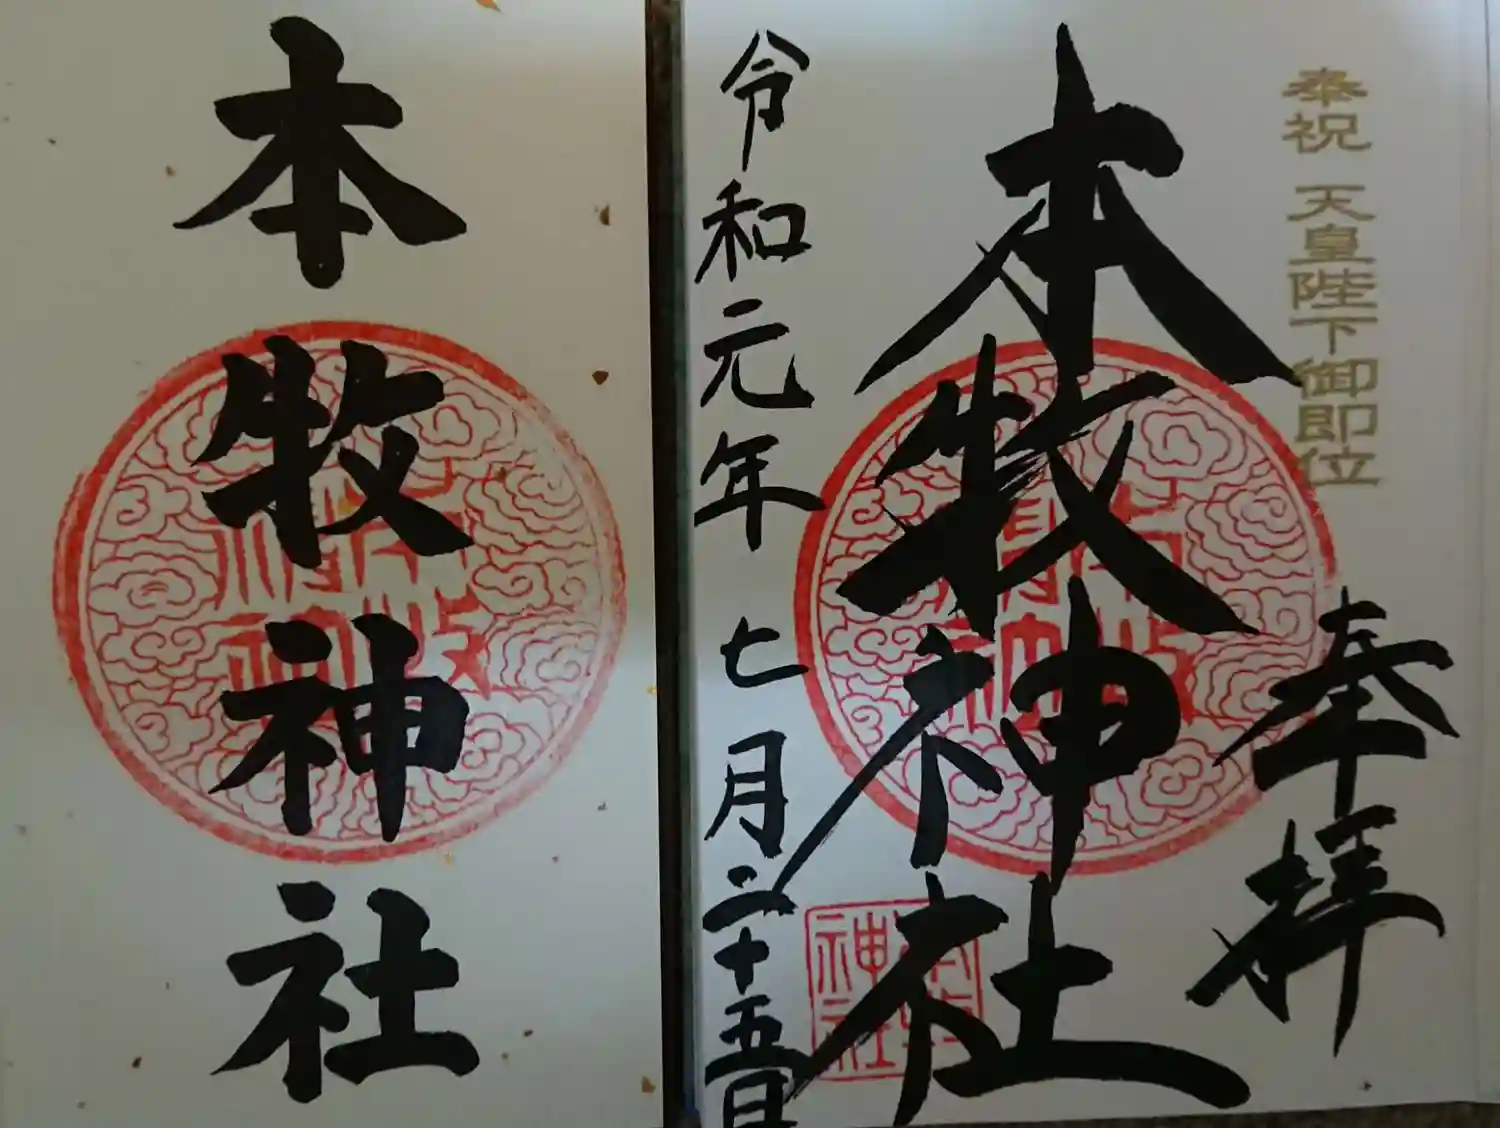 奉祝 天皇陛下御即位
奉拝
本牧神社
令和元年 七月二十五日
本牧神社
本牧神社